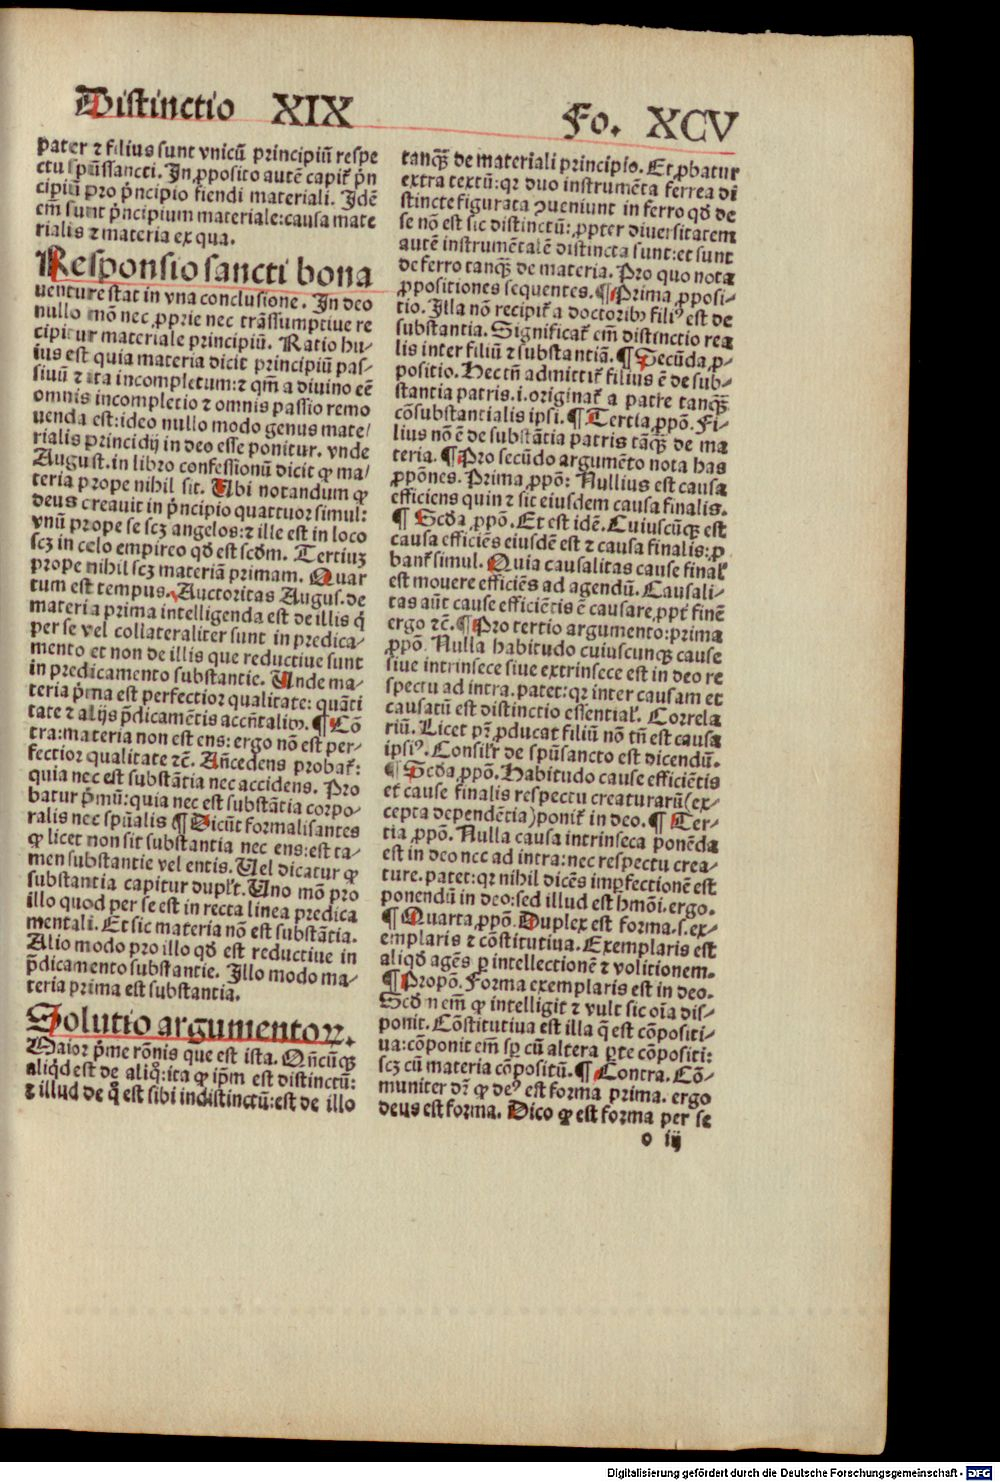 Distinctio XIX
Fo. XCV
pater ⁊ filius sunt vnicū principiū respe
ctu spūssancti. In ꝓposito autē capit̄ pn̄
cipiū pro p̄ncipio fiendi materiali. Idē
em̄ sunt p̄ncipium materiale: causa mate
rialis ⁊ materia ex qua.
Responsio sancti bona
uenture stat in vna conclusione. In deo
nullo mō nec ꝓprie nec trāssumptiue re
cipitur materiale principiū. Ratio hu-
ius est quia materia dicit principiū pas-
siuū ⁊ ita incompletum: ⁊ qm̄ a diuino eē
omnis incompletio ⁊ omnis passio remo
uenda est: ideo nullo modo genus mate/
rialis princidij in deo esse ponitur. vnde
August. in libro confessionū dicit ꝙ ma/
teria prope nihil sit. Ubi notandum ꝙ
deus creauit in p̄ncipio quattuor simul:
vnū prope se scꝫ angelos: ⁊ ille est in loco
scꝫ in celo empireo qd̄ est scd̄m. Tertiuꝫ
prope nihil scꝫ materiā primam. Quar
tum est tempus. Auctoritas Augus. de
materia prima intelligenda est de illis q̄
per se vel collateraliter sunt in predica-
mento et non de illis que reductiue sunt
in predicamento substantie. Unde ma-
teria p̄ma est perfectior qualitate: quāti
tate ⁊ alijs p̄dicamētis accn̄talibꝰ. ¶ Cō
tra: materia non est ens: ergo nō est per-
fectior qualitate ⁊c̄. An̄cedens probat̄:
quia nec est substātia nec accidens. Pro
batur p̄mū: quia nec est substātia corpo-
ralis nec spūalis ¶ Dicūt formalisantes
ꝙ licet non sit substantia nec ens: est ta-
men substantie vel entis. Uel dicatur ꝙ
substantia capitur dupl̄r. Uno mō pro
illo quod per se est in recta linea predica
mentali. Et sic materia nō est substātia.
Alio modo pro illo qd̄ est reductiue in
p̄dicamento substantie. Illo modo ma-
teria prima est substantia.
Solutio argumentoꝝ.
Maior p̄me rōnis que est ista. Qn̄cūqꝫ
aliqd est de aliq̊: ita ꝙ ip̄m est distinctū:
⁊ illud de q̊ est sibi indistinctū: est de illo
tanqꝫ̄ de materiali principio. Et ꝓbatur
extra textū: qr duo instrumēta ferrea di
stincte figurata ꝯueniunt in ferro qd̄ de
se nō est sic distinctū: ꝓpter diuersitatem
autē instrumētalē distincta sunt: et sunt
de ferro tanqꝫ̄ de materia. Pro quo nota
ꝓpositiones sequentes. ¶ Prima ꝓposi-
tio. Illa nō recipit̄ a doctoribꝰ filiꝰ est de
substantia. Significat̄ em̄ distinctio rea
lis inter filiū ⁊ substantiā. ¶ Secūda ꝓ-
positio. Hec tn̄ admittit̄ filius ē de sub-
stantia patris. i. originat̄ a patre tanqꝫ̄
cōsubstantialis ipsi. ¶ Tertia ꝓpō. Fi-
lius nō ē de substātia patris tāqꝫ̄ de ma
teria. ¶ Pro secūdo argumēto nota has
ꝓpōnes. Prima ꝓpō: Nullius est causa
efficiens quin ⁊ sit eiusdem causa finalis.
¶ Scd̄a ꝓpō. Et est idē. Cuiuscūqꝫ est
causa efficiēs eiusdē est ⁊ causa finalis: ꝓ
bant̄ simul. Quia causalitas cause final̄
est mouere efficiēs ad agendū. Causali-
tas aūt cause efficiētis ē causare ꝓpt̄ finē
ergo ⁊c̄. ¶ Pro tertio argumento: prima
ꝓpō Nulla habitudo cuiuscunqꝫ cause
siue intrinsece siue extrinsece est in deo re
spectu ad intra. patet: qr inter causam et
causatū est distinctio essential̄. Correla
riū. Licet pr̄ ꝓducat filiū nō tn̄ est causa
ipsiꝰ. Consil̄r de spūsancto est dicendū.
¶ Scd̄a ꝓpō. Habitudo cause efficiētis
et cause finalis respectu creaturarū (ex-
cepta dependētia) ponit̄ in deo. ¶ Ter-
tia ꝓpō. Nulla causa intrinseca ponēda
est in deo nec ad intra: nec respectu crea-
ture. patet: qr nihil dicēs imꝑfectionē est
ponendū in deo: sed illud est hmōi. ergo.
¶ Quarta ꝓpō. Duplex est forma. s. ex-
emplaris ⁊ cōstitutiua. Exemplaris est
aliqd̄ agēs ꝑ intellectionē ⁊ volitionem.
¶ Propō. Forma exemplaris est in deo.
Scd̄ꝫ em̄ ꝙ intelligit ⁊ vult sic oīa dis-
ponit. Cōstitutiua est illa q̄ est cōpositi-
ua: cōponit em̄ sꝑ cū altera ꝑte cōpositi:
scꝫ cū materia cōpositū. ¶ Contra. Cō-
muniter dr̄ ꝙ deꝰ est forma prima. ergo
deus est forma. Dico ꝙ est forma per se
o iij
Digitalisierung gefördert durch die Deutsche Forschungsgemeinschaft - DFG